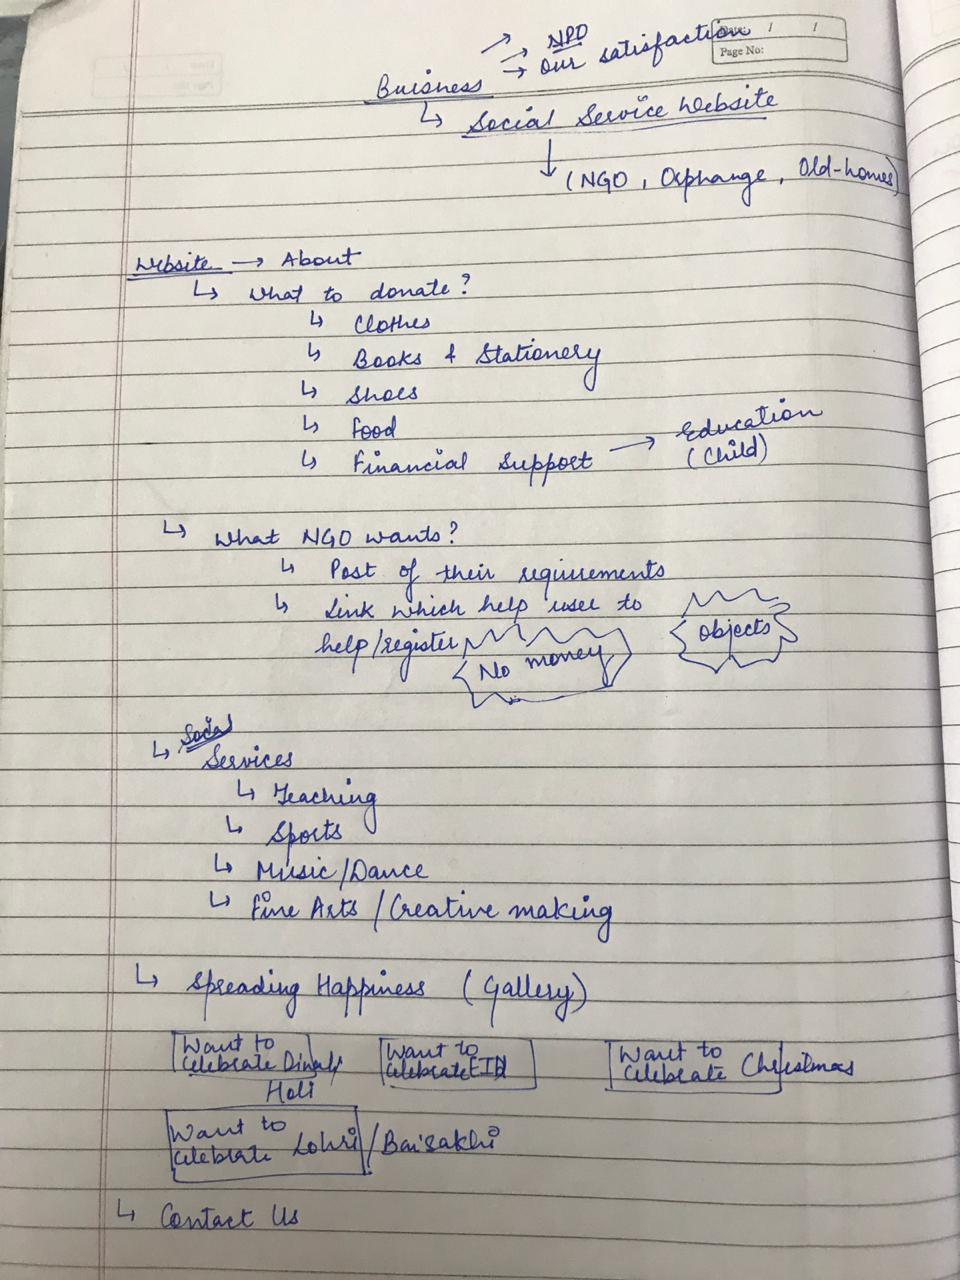 Date: / /
Page No:
→ NPO
→ our satisfaction
Buisness
↳ Social Service Website
↓
(NGO, Orphange, Old-homes)
Website → About
↳ What to donate?
↳ Clothes
↳ Books & Stationery
↳ Shoes
↳ Food
↳ Financial Support → Education
(Child)
↳ What NGO wants?
↳ Post of their requirements
↳ Link which help user to
help/register
No money
Objects
↳ Social
Services
↳ Teaching
↳ Sports
↳ Music/Dance
↳ Fine Arts/Creative making
↳ Spreading Happiness (Gallery)
Want to
Celebrate Diwali
Holi
Want to
Celebrate EID
Want to
Celebrate Christmas
Want to
Celebrate Lohri/Baisakhi
↳ Contact Us